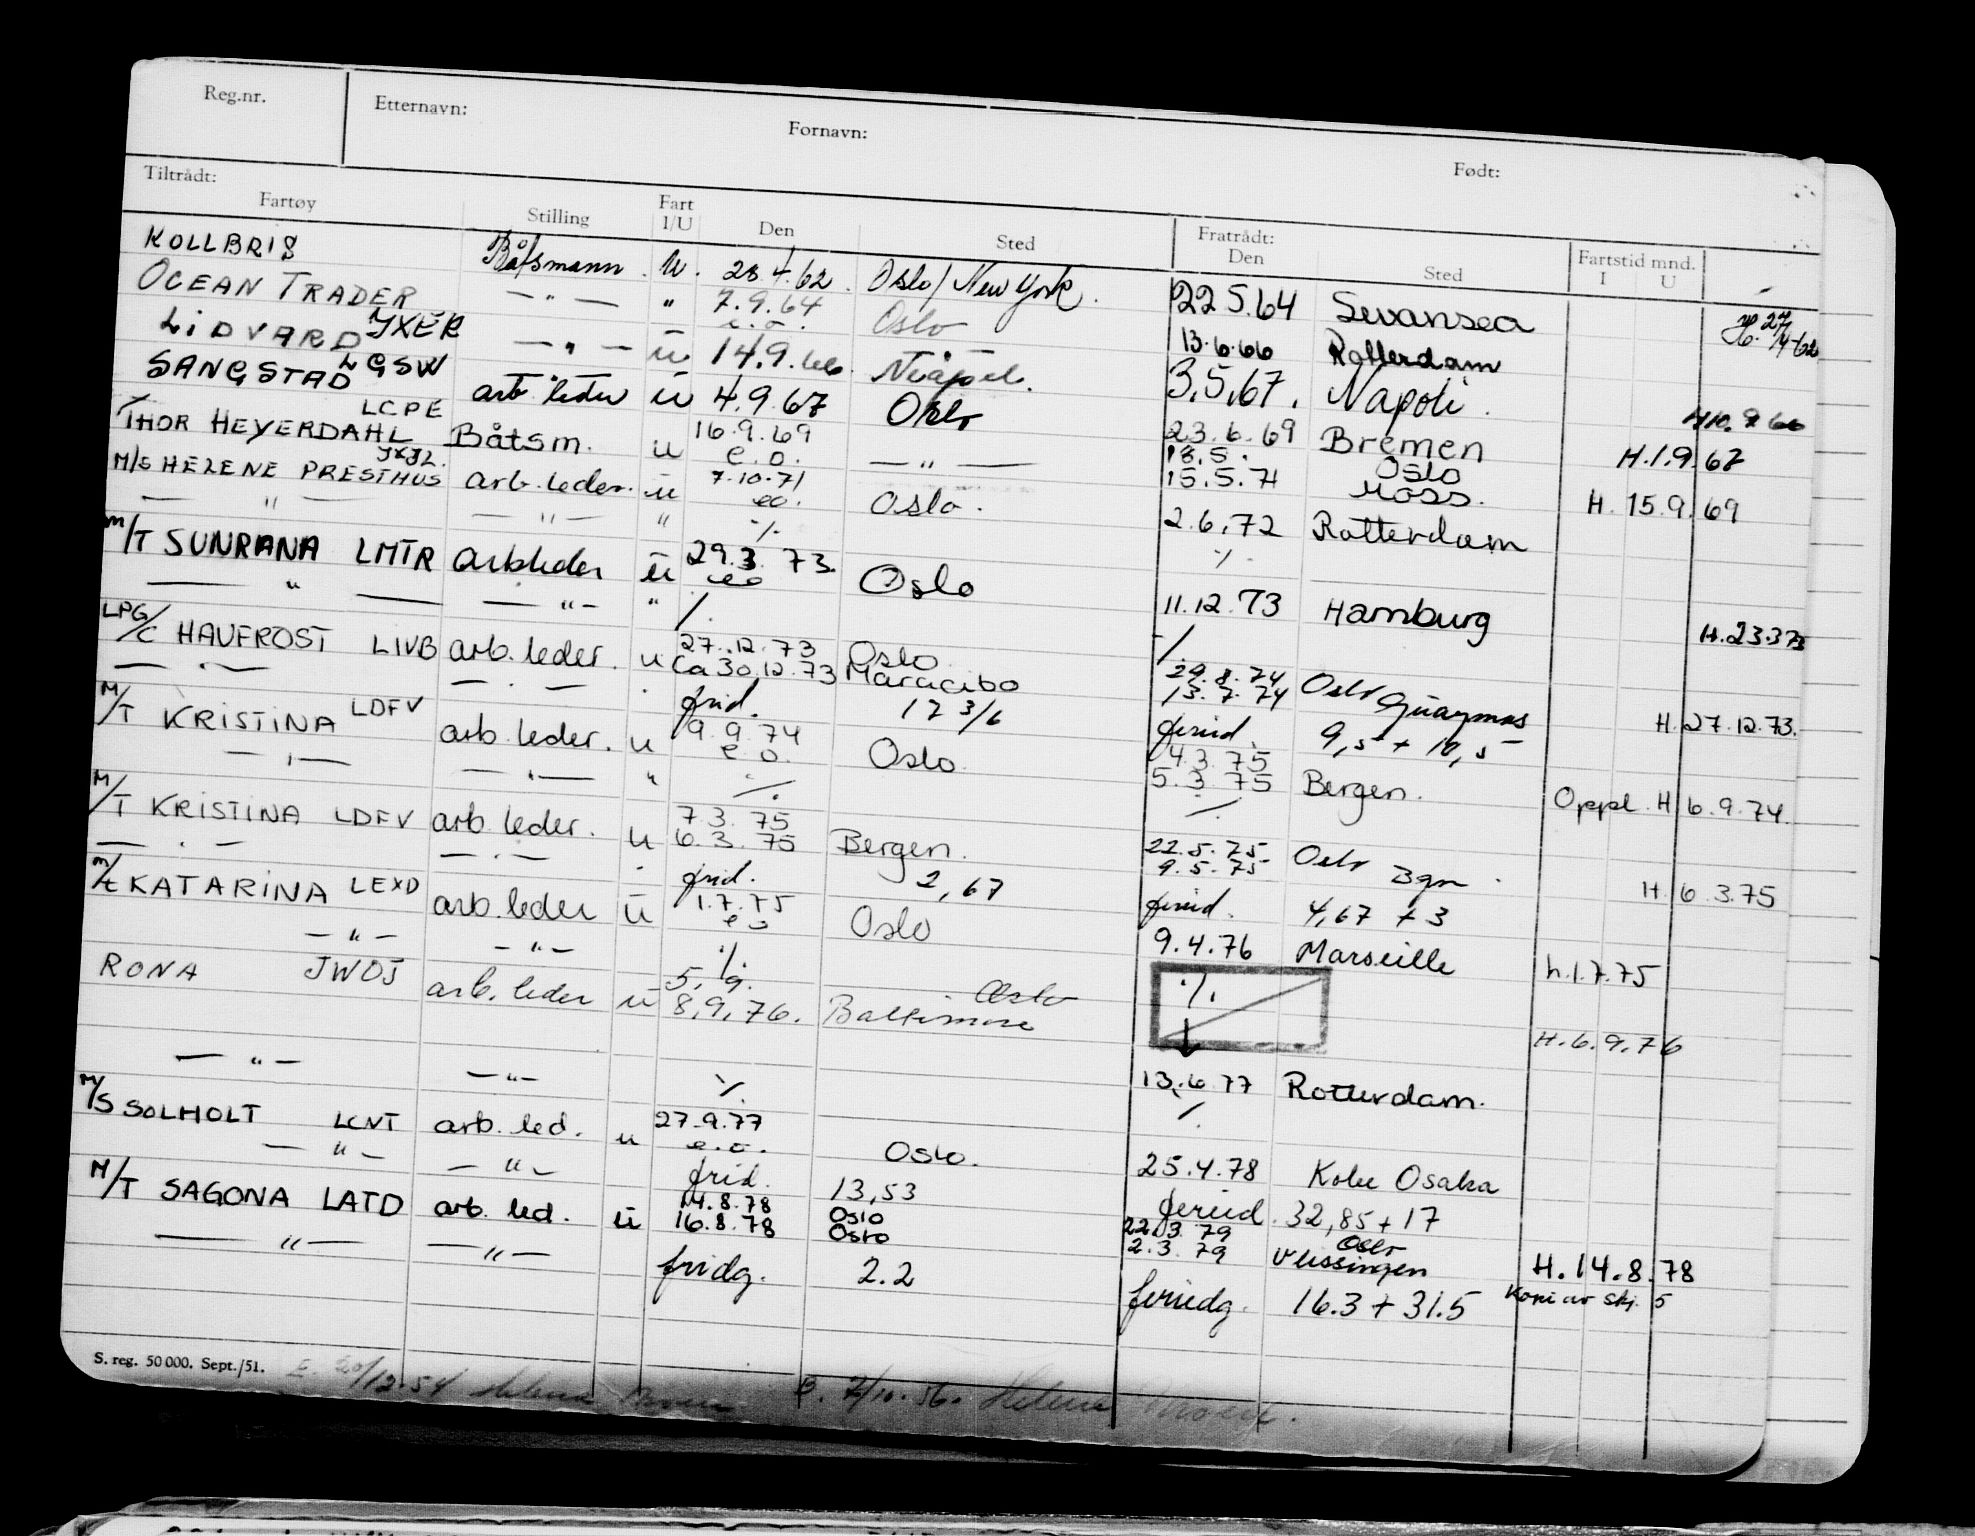 Reg.nr. Etternavn: Fornavn: Født:
Tiltrådt: Fratrådt: Fartstid mnd.
Fartøy Stilling Fart I/U Den Sted Den Sted I U
KOLLBRIS Båtsmann U. 28.4.62. Oslo/New York. 22.5.64 Swansea 27/4-62
OCEAN TRADER JXER — " — " 7.9.64 e.o. Oslo 13.6.66 Rotterdam
LIDVARD LGSW — " — u 14.9.66 3.5.67. Napoli. H10.9 66
SANGSTAD LCPE arb. leder u 4.9.67 Oslo 23.6.69 Bremen H.1.9.67
THOR HEYERDAHL JXJL. Båtsm. u 16.9.69 e.o. — " — 18.5. Oslo 15.5.71 Moss. H. 15.9.69
M/S HELENE PRESTHUS arb. leder. u 7.10.71 eo. Oslo. 2.6.72 Rotterdam
— " — — " — " ./. ./.
M/T SUNRANA LMTR arbleder u 29.3.73. eo Oslo 11.12.73 Hamburg H.23.3 73
— " — — " — " ./. ./.
LPG/C HAVFROST LIVB arb. leder. u 27.12.73 Oslo 29.8.74 Oslo H.27.12.73.
— " — — " — Ca 30.12.73 Maracibo 13.7.74 Guaymas
frid. 17 3/6 feried. 9,5 + 10,5
M/T KRISTINA LDFV arb. leder. u 9.9.74 e.o. Oslo 4.3.75 5.3.75 Bergen. Oppl. H 6.9.74.
— " — — " — " ./. ./.
M/T KRISTINA LDFV arb. leder. u 7.3.75 6.3.75 Bergen. 22.5.75 Oslo 9.5.75 Bgn. H. 6.3.75
— " — — " — " frid. 2,67 feried. 4,67 + 3
M/t KATARINA LEXD arb. leder u 1.7.75 eo Oslo 9.4.76 Marseille h.1.7.75
— " — — " — ./. ./.
RONA JWOJ arb. leder u 5.9. Oslo 8.9.76. Baltimore 13.6.77 Rotterdam. H.6.9.76
— " — — " — ./. ./.
M/S SOLHOLT LCNT arb. led. u 27.9.77 e.o. Oslo. 25.4.78 Kobe Osaka
— " — — " — frid. 13,53 feried. 32,85 + 17
M/T SAGONA LATD arb. led. u 14.8.78 Oslo 16.8.78 Oslo 22.3.79 Oslo 2.3.79 Vlissingen H.14.8.78
— " — — " — fridg. 2.2 feriedg. 16.3 + 31.5 Kopi av skj. 5
S. reg. 50 000. Sept./51. E. 20/12.54 Helene B. 7/10.56. Helene